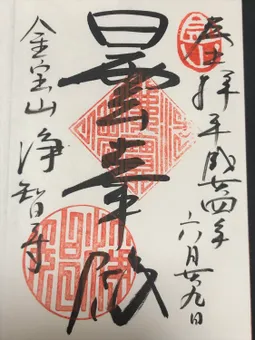 奉拝 平成廿四年
六月廿九日
曇華殿
金宝山 浄智寺